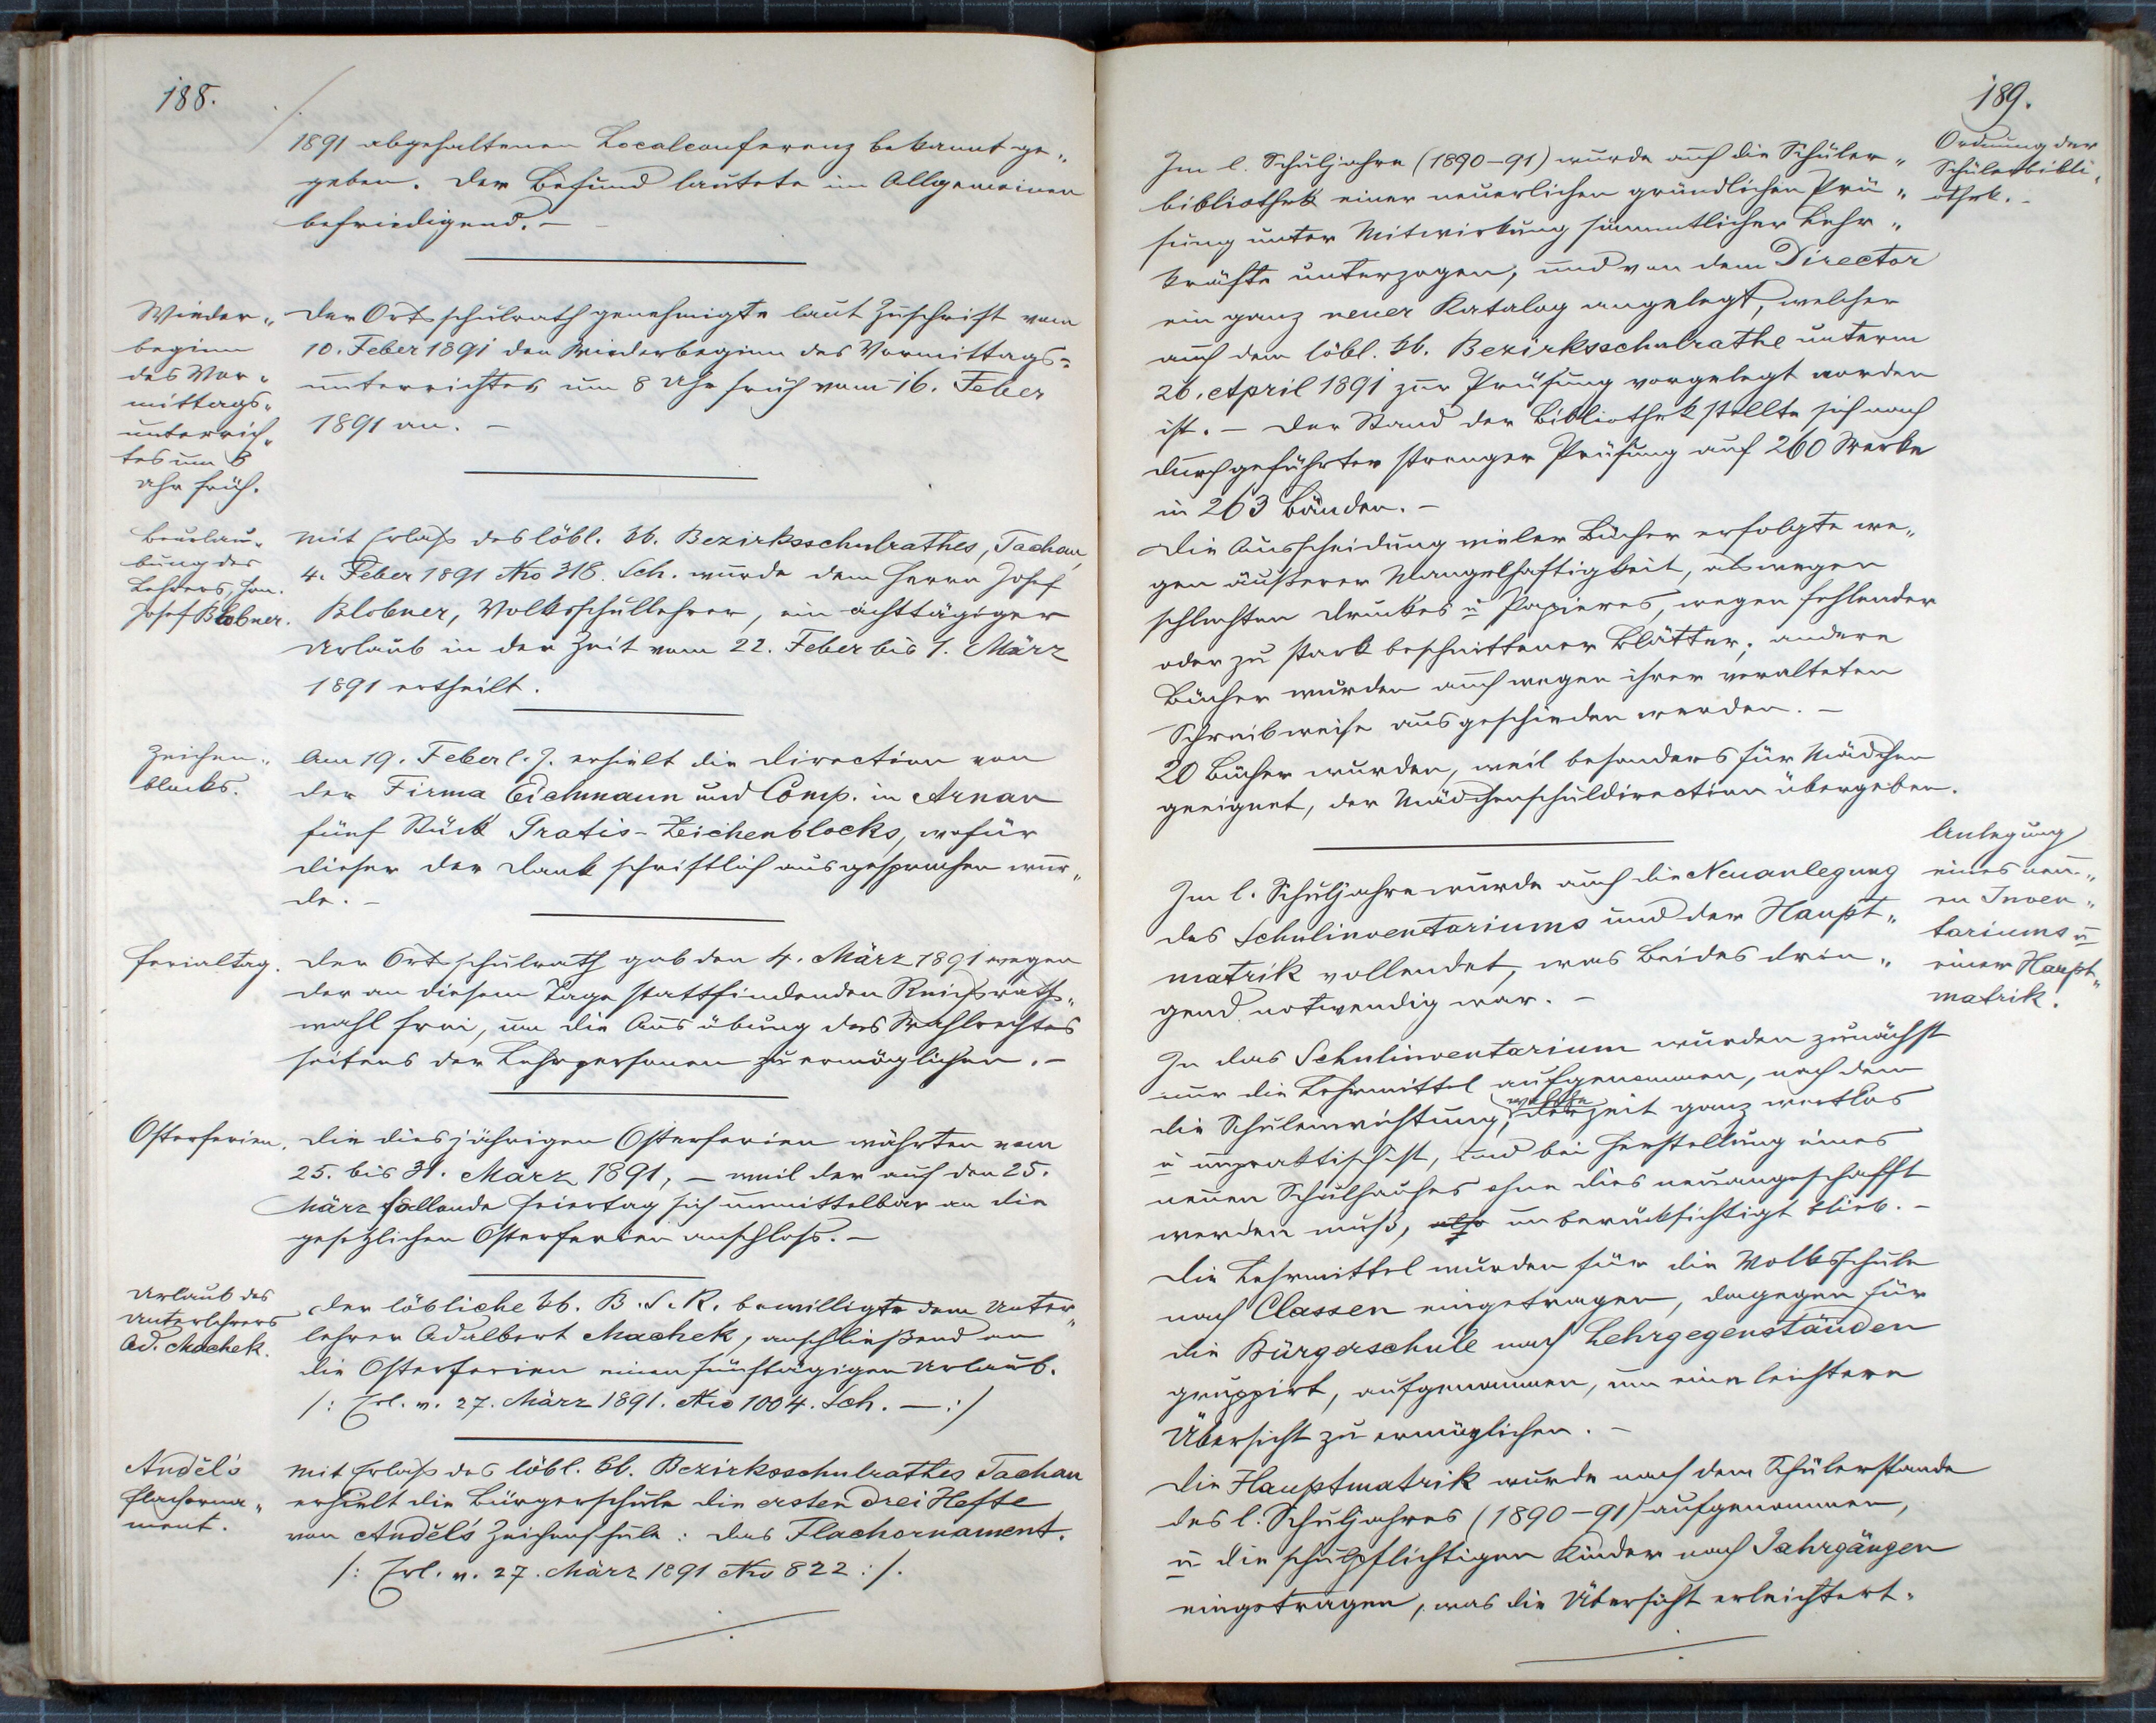 188.
1891 abgehaltenen Localconferenz bekannt ge„
geben. Der Befund lautete im Allgemeinen
befriedigend. –
Wieder„
beginn
des Vor„
mittags„
unterrich„
tes um 8
Uhr früh.
Der Ortsschulrath genehmigte laut Zuschrift vom
10. Feber 1891 den Wiederbeginn des Vormittags=
unterrichtes um 8 Uhr früh vom 16. Feber
1891 an. –
Beurlau„
bung des
Lehrers, Hrn.
Josef Blobner.
Mit Erlaß des löbl. kk. Bezirksschulrathes, Tachau,
4. Feber 1891 Nro 318. Sch. wurde dem Herrn Josef
Blobner, Volksschullehrer, ein achttägiger
Urlaub in der Zeit vom 22. Feber bis 1. März
1891 ertheilt.
Zeichen„
blocks.
Am 19. Feber l. J. erhielt die Direction von
der Firma Eichmann und Comp. in Arnau
fünf Stück Gratis-Zeichenblocks, wofür
dieser der Dank schriftlich ausgesprochen wur„
de. –
Ferialtag.
Der Ortsschulrath gab den 4. März 1891 wegen
der an diesem Tage stattfindenden Reichsraths„
wahl frei, um die Ausübung des Wahlrechtes
seitens der Lehrpersonen zu ermöglichen. –
Osterferien.
Die diesjährigen Osterferien währten vom
25. bis 31. März 1891, – weil der auf den 25.
März fallende Feiertag sich unmittelbar an die
gesetzlichen Osterferien anschloß. –
Urlaub des
Unterlehrers
Ad. Machek.
Der löbliche kk. B. S. R. bewilligte dem Unter„
lehrer Adalbert Machek, anschließend an
die Osterferien einen fünftägigen Urlaub.
/: Erl. v. 27. März 1891. Nro 1004. Sch. – :/
Anděl's
Flachorna„
ment.
Mit Erlaß des löbl. kk. Bezirksschulrathes Tachau
erhielt die Bürgerschule die ersten drei Hefte
von Anděl's Zeichenschule: Das Flachornament.
/: Erl. v. 27. März 1891 Nro 822 :/.
189.
Ordnung der
Schülerbibli„
othek. –
Im l. Schuljahre (1890–91) wurde auch die Schüler„
bibliothek einer neuerlichen gründlichen Prü„
fung unter Mitwirkung sämmtlicher Lehr„
kräfte unterzogen, und von dem Director
ein ganz neuer Katalog angelegt, welcher
auch dem löbl. kk. Bezirksschulrathe unterm
26. April 1891 zur Prüfung vorgelegt worden
ist. – Der Stand der Bibliothek stellte sich nach
durchgeführter strenger Prüfung auf 260 Werke
in 263 Bänden. –
Die Ausscheidung vieler Bücher erfolgte we„
gen äußerer Mangelhaftigkeit, als wegen
schlechten Druckes u Papieres, wegen fehlender
oder zu stark beschnittener Blätter; andere
Bücher wurden auch wegen ihrer veralteten
Schreibweise ausgeschieden werden. –
20 Bücher wurden, weil besonders für Mädchen
geeignet, der Mädchenschuldirection übergeben.
Anlegung
eines neu„
en Inven„
tariums u
einer Haupt„
matrik.
Im l. Schuljahre wurde auch die Neuanlegung
des Schulinventariums und der Haupt„
matrik vollendet, was beides drin„
gend notwendig war. –
In das Schulinventarium wurden zunächst
nur die Lehrmittel aufgenommen, nachdem
die Schuleinrichtung, welche derzeit ganz wertlos
u unpraktisch ist, und bei Herstellung eines
neuen Schulhauses ohne dies neuangeschafft
werden muß, also unberücksichtigt blieb. –
Die Lehrmittel wurden für die Volksschule
nach Classen eingetragen, dagegen für
die Bürgerschule nach Lehrgegenständen
gruppirt, aufgenommen, um eine leichtere
Übersicht zu ermöglichen. –
Die Hauptmatrik wurde nach dem Schülerstande
des l. Schuljahres (1890–91) aufgenommen,
u die schulpflichtigen Kinder nach Jahrgängen
eingetragen, was die Übersicht erleichtert.